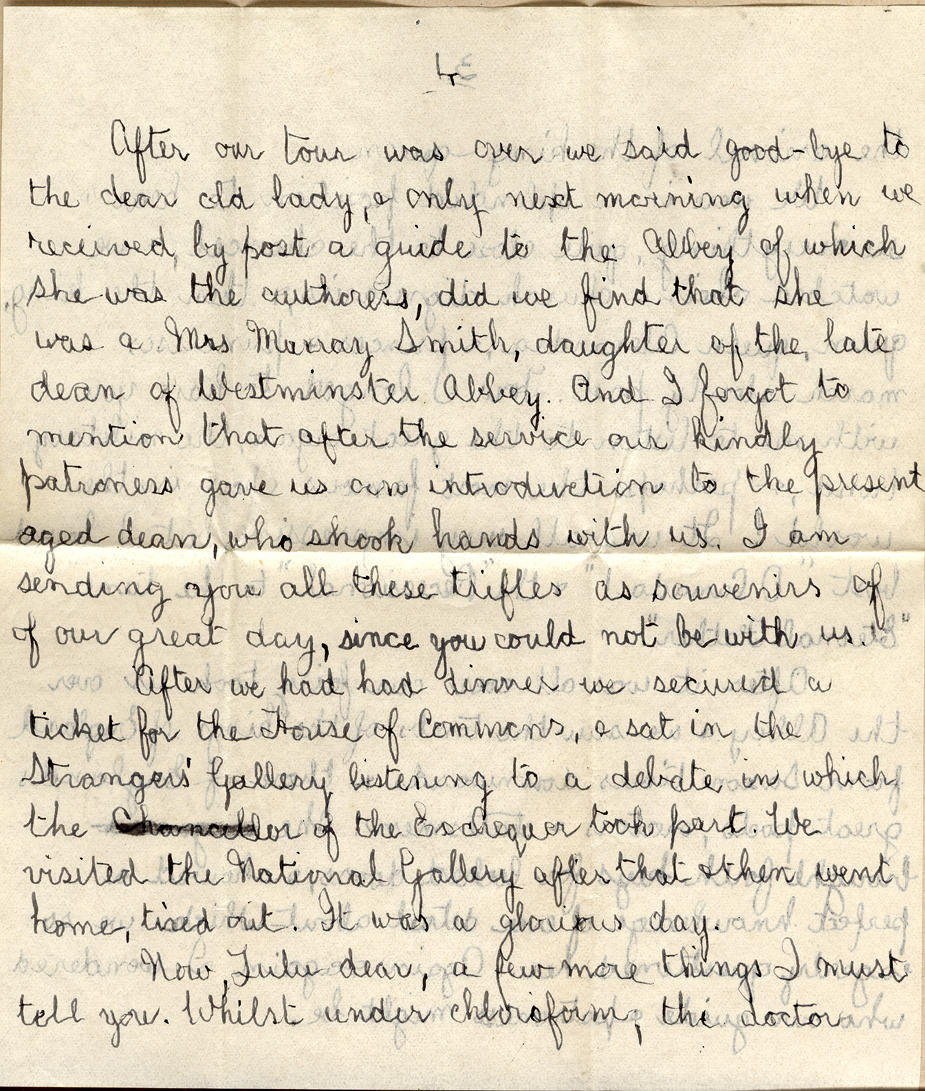 4
After our tour was over we said good-bye to
the dear old lady, & only next morning when we
received, by post a guide to the Abbey of which
she was the authoress, did we find that she
was a Mrs Murray Smith, daughter of the late
dean of Westminster Abbey. And I forgot to
mention that after the service our kindly
patroness gave us an introduction to the present
aged dean, who shook hands with us. I am
sending you all these "trifles" as souvenirs of
of our great day, since you could not be with us."
After we had had dinner we secured a
ticket for the House of Commons, & sat in the
Strangers' Gallery listening to a debate in which
the Chancellor of the Exchequer took part. We
visited the National Gallery after that & then went
home, tired out. It was a glorious day.
Now, Lulu dear, a few more things I must
tell you. Whilst under chloroform, the doctor